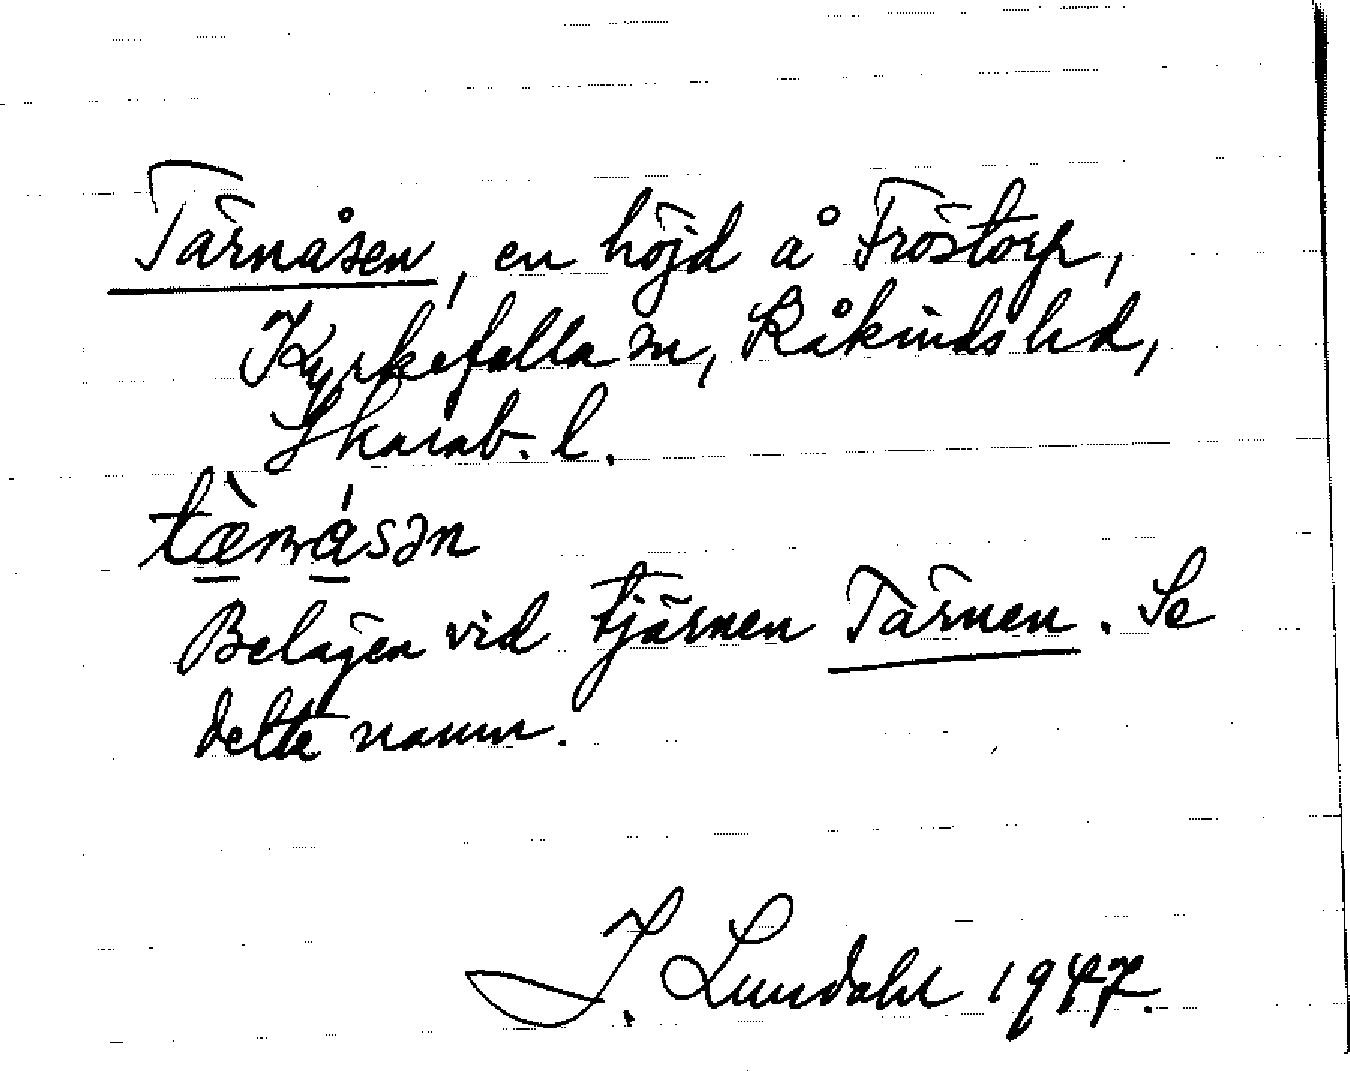 Tärnåsen, en höjd å Fröstorp,
Kyrkefalla sn, Kåkinds hd,
Skarab. l.
Belägen vid tjärnen Tärnen. Se
detta namn.
I. Lundahl 1947.